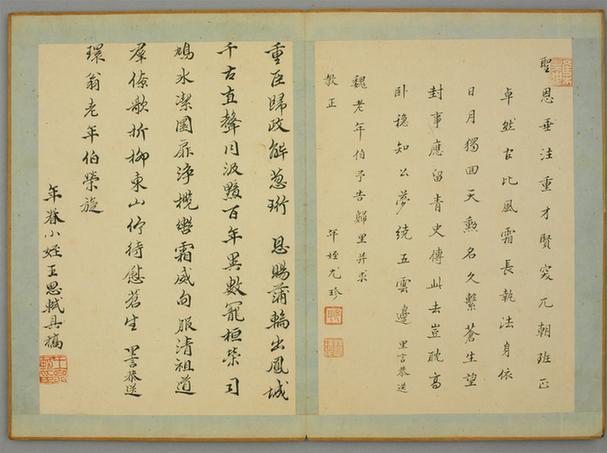 聖恩垂注重才賢突兀朝班正
卓然官比風霜長執法身依
日月獨回天勳名久繫蒼生望
封事應留青史傳此去豈耽高
卧穩知公夢繞五雲邊 里言恭送
魏老年伯予告歸里并求
教正
年姪尤珍
重臣歸政解蔥珩 恩賜蒲輪出鳳城
千古直聲同汲黯百年異數寵桓榮司
鳩水潔圜扉淨攬轡霜威甸服清祖道
羣僚歌折柳東山佇待慰蒼生 里言恭送
環翁老年伯榮旋
年眷小姪王思軾具稿